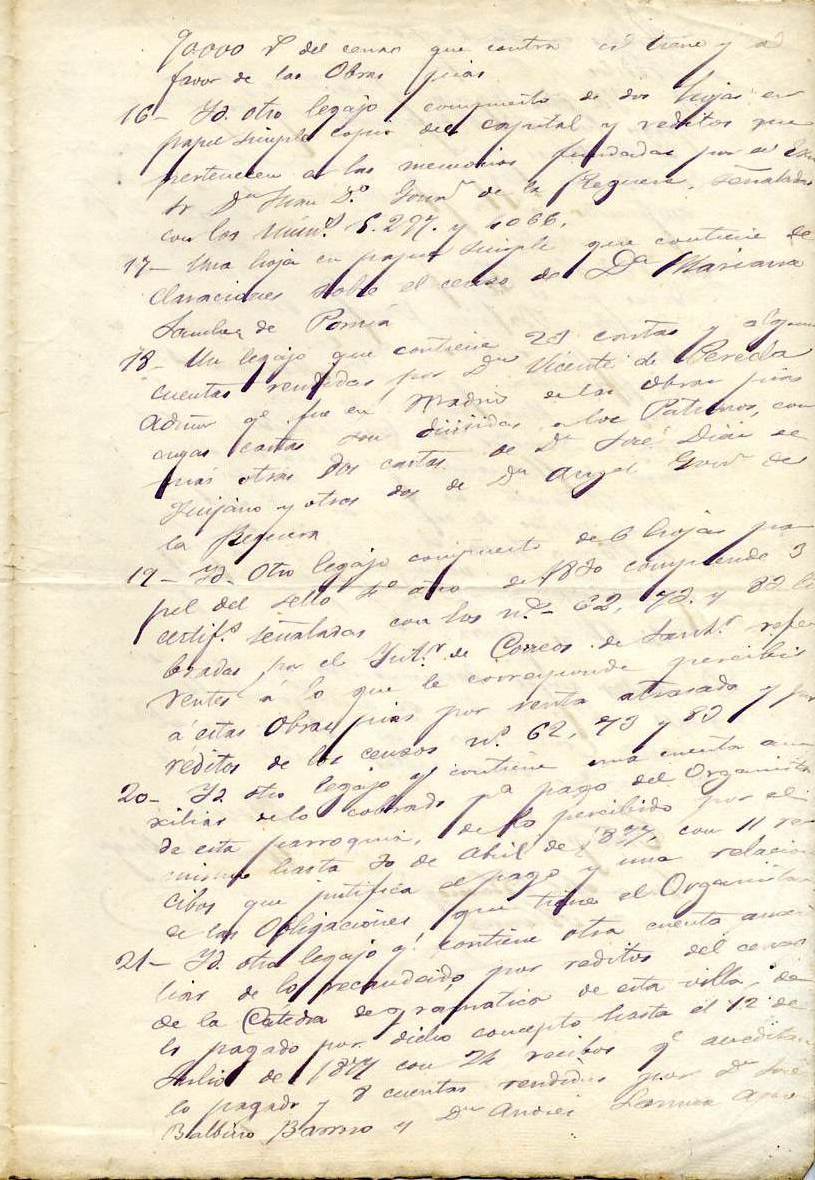 90.000 rs del censo que contra él tiene y a
favor de las Obras pias
16- Id. otro legajo compuesto de dos hojas en
papel simple copia del capital y reditos que
pertenecen a las memorias fundadas por el
Sr Dn Juan de la Reguera, señalados
con los números 5.297. y 1066.
17- Una hoja en papel simple que contiene de
claraciones sobre el censo de Da Mariana
Sanchez de
18- Un legajo que contiene cartas y algunas
cuentas rendidas por Dn Vicente de Pereda
admor qe fue en Madrid de las obras pias
cuyas cartas son dirijidas a los Patronos, con
mas otras dos cartas de Dn José Diaz de
Quijano y otras dos de Dn Angel de
la Reguera
19- Id. Otro legajo compuesto de 6 hojas pa
pel del sello 4º año de comprende 3
certifs señaladas con los nos 62, 73. y 83 li
bradas por el de Correos de Santr refe
rentes á lo que le corresponde percibir
á estas Obras pias por renta atrasada y por
réditos de los censos nos 62, 73 y 83
20- Id. otro legajo qe contiene una cuenta au
xiliar de lo cobrado pa pago del Organista
de esta parroquia, de lo percibido por el
mismo hasta 30 de Abril de 1877, con 11 re
cibos que justifica el pago y una relacion
de las Obligaciones que tiene el Organista
21- Id. otro legajo qe contiene otra cuenta auxi
liar de lo recaudado por reditos del censo
de la Cátedra de gramatica de esta villa, de
lo pagado por dicho concepto hasta el 12 de
Julio de 1877 con 24 recibos qe acreditan
lo pagado y 8 cuentas rendidas por Dn José
Balbino Barreo y Dn Andrés